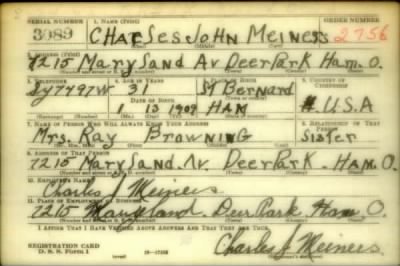 SERIAL NUMBER 1. NAME (Print) ORDER NUMBER
3089 CHArLes JoHN Meiners 2756
2. ADDRESS (Print)
7215 Maryland Av Deer Park Ham. O.
3. TELEPHONE 4. AGE IN YEARS 5. PLACE OF BIRTH 6. COUNTRY OF CITIZENSHIP
Sy7497W 31 St Bernard
DATE OF BIRTH
1 13 1909 HAM U.S.A
7. NAME OF PERSON WHO WILL ALWAYS KNOW YOUR ADDRESS 8. RELATIONSHIP OF THAT PERSON
Mrs. Ray Browning Sister
9. ADDRESS OF THAT PERSON
7215 Maryland Av. Deer Park. Ham. O
10. EMPLOYER'S NAME
Charles J Meiners
11. PLACE OF EMPLOYMENT OR BUSINESS
7215 Maryland. Deer Park Ham O.
I AFFIRM THAT I HAVE VERIFIED ABOVE ANSWERS AND THAT THEY ARE TRUE.
REGISTRATION CARD
D. S. S. FORM 1 Charles J Meiners